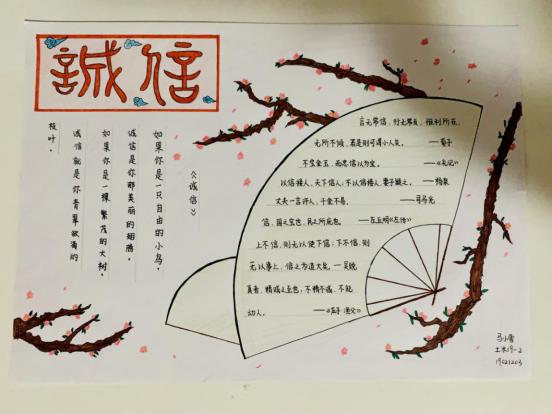 誠信
《诚信》
如果你是一只自由的小鸟，
诚信是你那美丽的翅膀。
如果你是一棵繁茂的大树，
诚信就是你青翠欲滴的
枝叶。
言无常信，行无常贞，惟利所在，
无所不倾，若是则可谓小人矣。——荀子
不宝金玉，而忠信以为宝。——《礼记》
以信接人，天下信人；不以信接人，妻子疑之。——杨泉
丈夫一言许人，千金不易。——司马光
信，国之宝也，民之所庇也。——左丘明《左传》
上不信，则无以使下信；下不信，则
无以事上，信之为道大矣。——吴兢
真者，精诚之至也；不精不诚，不能
动人。——《庄子·渔父》
马小雪
土木19-2
19021203